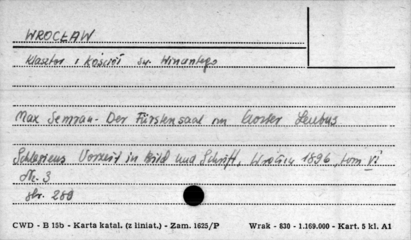 WROCŁAW
Klasztor i kościół św. Winantego
Max Semrau - Der Fürstensaal im Kloster Leubus
Schlesiens Vorzeit in Bild und Schrift, Wrocław 1896, tom VI
Nr. 3
str. 280
CWD - B 15b - Karta katal. (z liniat.) - Zam. 1625/P Wrak - 830 - 1.169.000 - Kart. 5 kl. A1